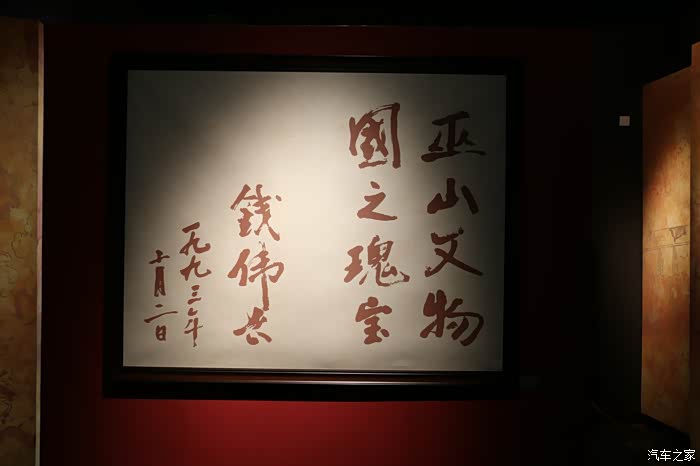 巫山文物
國之瑰宝
錢伟长
一九九三年
十月二日
汽车之家